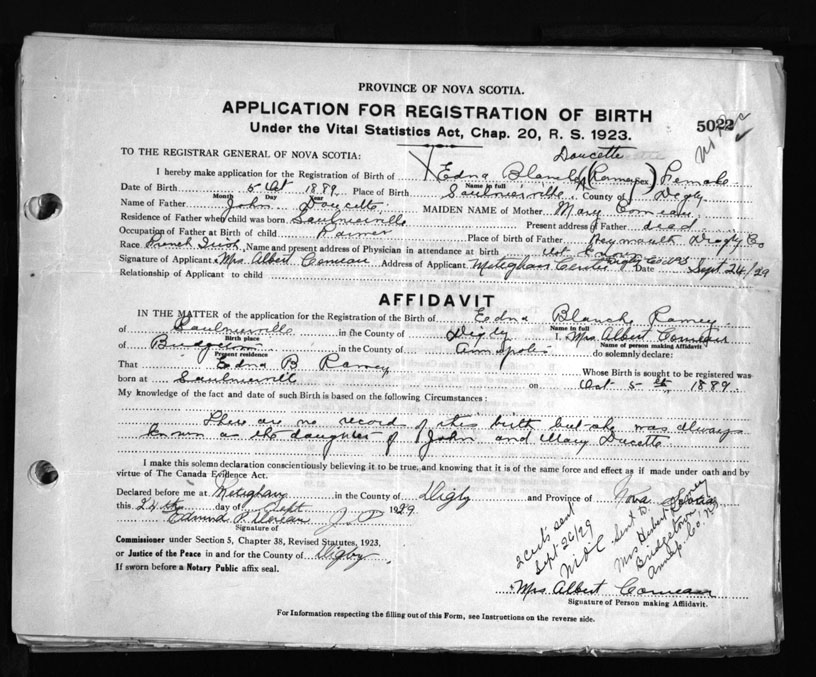 PROVINCE OF NOVA SCOTIA.
APPLICATION FOR REGISTRATION OF BIRTH
5022
Under the Vital Statistics Act, Chap. 20, R. S. 1923.
Doucette
TO THE REGISTRAR GENERAL OF NOVA SCOTIA:
I hereby make application for the Registration of Birth of Edna Blanche (Ramey) Female
Name in full Sex
Date of Birth 5 Oct 1889 Place of Birth Saulnierville County of Digby
Month Day Year
Name of Father John Doucette MAIDEN NAME of Mother Mary Comeau
Residence of Father when child was born Saulnierville Present address of Father dead
Occupation of Father at Birth of child Farmer Place of birth of Father Weymouth Digby Co
Race French Name and present address of Physician in attendance at birth not known
Signature of Applicant Mrs Albert Comeau Address of Applicant Meteghan Center Digby Co NS Date Sept 24/29
Relationship of Applicant to child
AFFIDAVIT
IN THE MATTER of the application for the Registration of the Birth of Edna Blanche Ramey
Name in full
of Saulnierville in the County of Digby I, Mrs Albert Comeau
Birth place Name of person making Affidavit
of Bridgetown in the County of Annapolis do solemnly declare:
Present residence
That Edna B Ramey Whose Birth is sought to be registered was
born at Saulnierville on Oct 5th 1889.
My knowledge of the fact and date of such Birth is based on the following Circumstances:
There are no record of this birth but she was always
known as the daughter of John and Mary Ducette
I make this solemn declaration conscientiously believing it to be true, and knowing that it is of the same force and effect as if made under oath and by
virtue of The Canada Evidence Act.
Declared before me at Meteghan in the County of Digby and Province of Nova Scotia
this 24th day of Sept 1929
Edmund J. P
Signature of
Commissioner under Section 5, Chapter 38, Revised Statutes, 1923,
or Justice of the Peace in and for the County of Digby
If sworn before a Notary Public affix seal.
2 certs sent
Sept 26/29
sent to
Mrs Hubert Ramey
Bridgetown
Annap. Co. N.S.
Mrs Albert Comeau
Signature of Person making Affidavit.
For Information respecting the filling out of this Form, see Instructions on the reverse side.